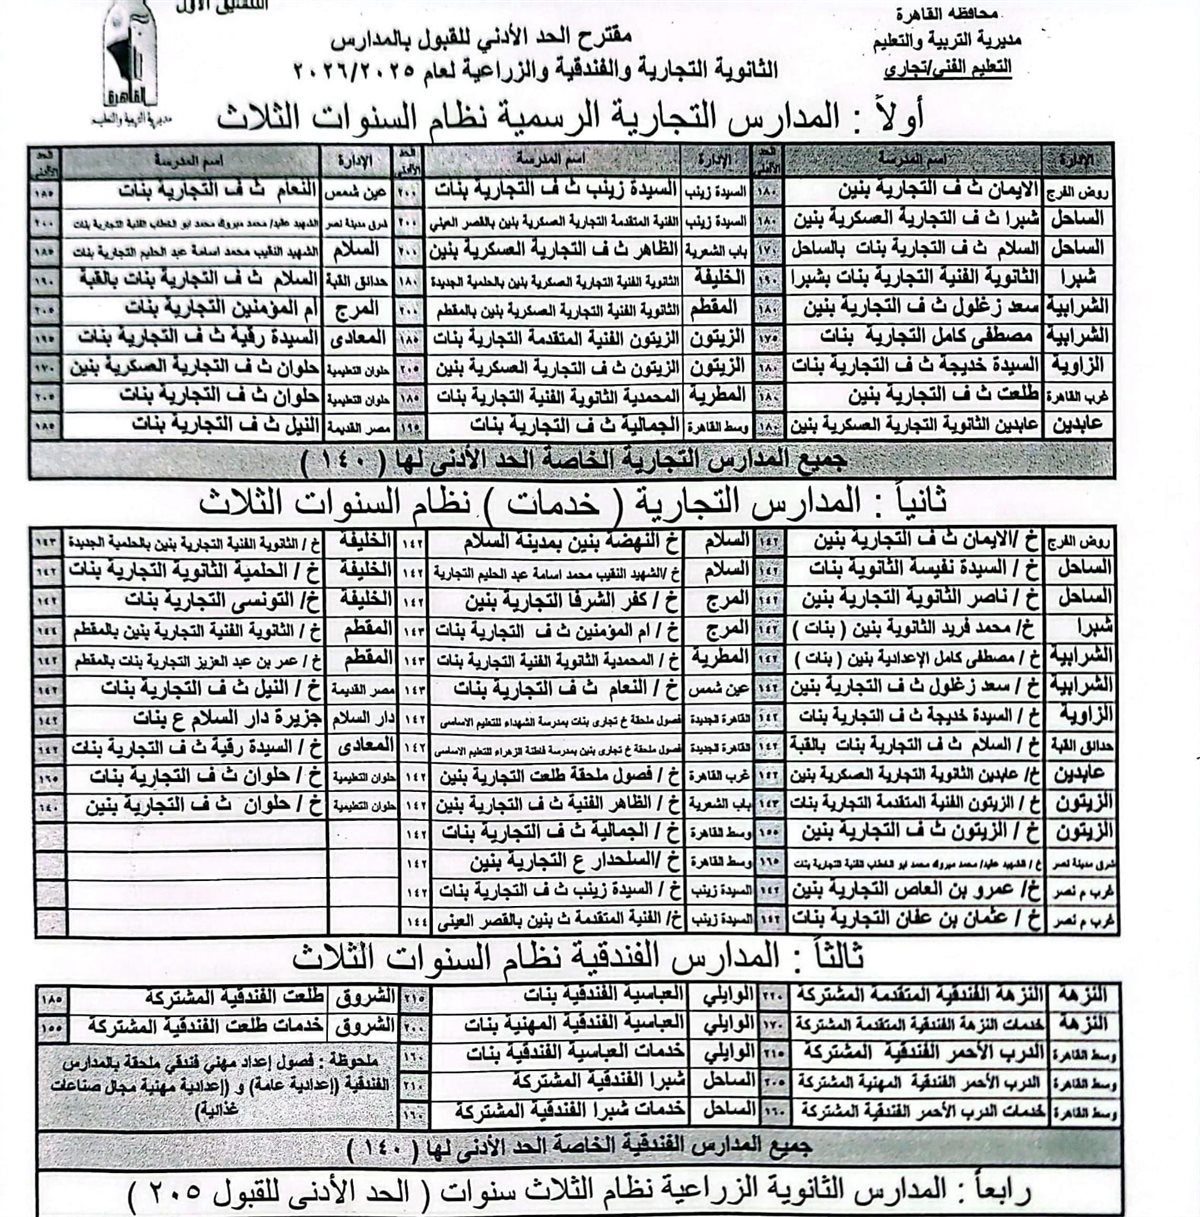 التنسيق الأول
محافظة القاهرة
مديرية التربية والتعليم
التعليم الفني/تجارى
القاهرة
مديرية التربية والتعليم
مقترح الحد الأدني للقبول بالمدارس
الثانوية التجارية والفندقية والزراعية لعام ٢٠٢٦/٢٠٢٥
أولاً : المدارس التجارية الرسمية نظام السنوات الثلاث
الإدارة اسم المدرسة الحد الأدنى الإدارة اسم المدرسة الحد الأدنى الإدارة اسم المدرسة الحد الأدنى
روض الفرج الايمان ث ف التجارية بنين ١٨٠ السيدة زينب السيدة زينب ث ف التجارية بنات ٢٠٠ عين شمس النعام ث ف التجارية بنات ١٨٥
الساحل شبرا ث ف التجارية العسكرية بنين ١٨٠ السيدة زينب الفنية المتقدمة التجارية العسكرية بنين بالقصر العيني ٢٠٠ شرق مدينة نصر الشهيد عقيد/ محمد مبروك محمد ابو الخطاب الفنية التجارية بنات ٢٠٠
الساحل السلام ث ف التجارية بنات بالساحل ١٧٠ باب الشعرية الظاهر ث ف التجارية العسكرية بنين ٢٠٠ السلام الشهيد النقيب محمد اسامة عبد الحليم التجارية بنات ١٨٥
شبرا الثانوية الفنية التجارية بنات بشبرا ١٩٠ الخليفة الثانوية الفنية التجارية العسكرية بنين بالحلمية الجديدة ١٨٠ حدائق القبة السلام ث ف التجارية بنات بالقبة ١٩٠
الشرابية سعد زغلول ث ف التجارية بنين ١٨٠ المقطم الثانوية الفنية التجارية العسكرية بنين بالمقطم ٢٠٠ المرج ام المؤمنين التجارية بنات ٢٠٥
الشرابية مصطفى كامل التجارية بنات ١٧٥ الزيتون الزيتون الفنية المتقدمة التجارية بنات ١٨٥ المعادى السيدة رقية ث ف التجارية بنات ١٩٥
الزاوية السيدة خديجة ث ف التجارية بنات ١٨٠ الزيتون الزيتون ث ف التجارية العسكرية بنين ٢٠٥ حلوان التعليمية حلوان ث ف التجارية العسكرية بنين ١٧٠
غرب القاهرة طلعت ث ف التجارية بنين ١٨٠ المطرية المحمدية الثانوية الفنية التجارية بنات ١٨٥ حلوان التعليمية حلوان ث ف التجارية بنات ٢٠٥
عابدين عابدين الثانوية التجارية العسكرية بنين ١٨٠ وسط القاهرة الجمالية ث ف التجارية بنات ١٩٥ مصر القديمة النيل ث ف التجارية بنات ١٨٥
جميع المدارس التجارية الخاصة الحد الأدنى لها ( ١٤٠ )
ثانياً : المدارس التجارية ( خدمات ) نظام السنوات الثلاث
روض الفرج خ /الايمان ث ف التجارية بنين ١٤٢ السلام خ النهضة بنين بمدينة السلام ١٤٢ الخليفة خ / الثانوية الفنية التجارية بنين بالحلمية الجديدة ١٤٣
الساحل خ / السيدة نفيسة الثانوية بنات ١٤٢ السلام خ /الشهيد النقيب محمد اسامة عبد الحليم التجارية ١٤٢ الخليفة خ / الحلمية الثانوية التجارية بنات ١٤٢
الساحل خ / ناصر الثانوية التجارية بنين ١٤٢ المرج خ / كفر الشرفا التجارية بنين ١٤٢ الخليفة خ/ التونسى التجارية بنات ١٤٢
شبرا خ/ محمد فريد الثانوية بنين ( بنات ) ١٤٢ المرج خ / ام المؤمنين ث ف التجارية بنات ١٤٣ المقطم خ / الثانوية الفنية التجارية بنين بالمقطم ١٤٤
الشرابية خ / مصطفى كامل الإعدادية بنين ( بنات ) ١٤٢ المطرية خ / المحمدية الثانوية الفنية التجارية بنات ١٤٣ المقطم خ / عمر بن عبد العزيز التجارية بنات بالمقطم ١٤٢
الشرابية خ / سعد زغلول ث ف التجارية بنين ١٤٢ عين شمس خ / النعام ث ف التجارية بنات ١٤٣ مصر القديمة خ / النيل ث ف التجارية بنات ١٤٢
الزاوية خ / السيدة خديجة ث ف التجارية بنات ١٤٢ القاهرة الجديدة فصول ملحقة خ تجارى بنات بمدرسة الشهداء للتعليم الاساسى ١٤٢ دار السلام جزيرة دار السلام ع بنات ١٤٢
حدائق القبة خ / السلام ث ف التجارية بنات بالقبة ١٤٢ القاهرة الجديدة فصول ملحقة خ تجارى بنين بمدرسة فاطمة الزهراء للتعليم الاساسى ١٤٢ المعادى خ / السيدة رقية ث ف التجارية بنات ١٤٢
عابدين خ/ عابدين الثانوية التجارية العسكرية بنين ١٤٢ غرب القاهرة خ / فصول ملحقة طلعت التجارية بنين ١٤٢ حلوان التعليمية خ / حلوان ث ف التجارية بنات ١٦٥
الزيتون خ / الزيتون الفنية المتقدمة التجارية بنات ١٤٣ باب الشعرية خ / الظاهر الفنية ث ف التجارية بنين ١٤٢ حلوان التعليمية خ / حلوان ث ف التجارية بنين ١٤٠
الزيتون خ / الزيتون ث ف التجارية بنين ١٥٥ وسط القاهرة خ / الجمالية ث ف التجارية بنات ١٤٢
شرق مدينة نصر خ / الشهيد عقيد/ محمد مبروك محمد ابو الخطاب الفنية التجارية بنات ١٦٥ وسط القاهرة خ /السلحدار ع التجارية بنين ١٤٢
غرب م نصر خ/ عمرو بن العاص التجارية بنين ١٤٢ السيدة زينب خ / السيدة زينب ث ف التجارية بنات ١٤٢
غرب م نصر خ / عثمان بن عفان التجارية بنات ١٤٢ السيدة زينب خ/ الفنية المتقدمة ث بنين بالقصر العينى ١٤٤
ثالثاً : المدارس الفندقية نظام السنوات الثلاث
النزهة النزهة الفندقية المتقدمة المشتركة ٢٢٠ الوايلي العباسية الفندقية بنات ٢١٥ الشروق طلعت الفندقية المشتركة ١٨٥
النزهة خدمات النزهة الفندقية المتقدمة المشتركة ١٧٠ الوايلي العباسية الفندقية المهنية بنات ٢٠٠ الشروق خدمات طلعت الفندقية المشتركة ١٥٥
وسط القاهرة الدرب الأحمر الفندقية المشتركة ٢١٥ الوايلي خدمات العباسية الفندقية بنات ١٦٠
وسط القاهرة الدرب الأحمر الفندقية المهنية المشتركة ٢٠٥ الساحل شبرا الفندقية المشتركة ٢١٠
وسط القاهرة خدمات الدرب الأحمر الفندقية المشتركة ١٦٠ الساحل خدمات شبرا الفندقية المشتركة ١٦٠
ملحوظة : فصول إعداد مهني فندقي ملحقة بالمدارس
الفندقية (إعدادية عامة) و (إعدادية مهنية مجال صناعات
غذائية)
جميع المدارس الفندقية الخاصة الحد الأدنى لها ( ١٤٠ )
رابعاً : المدارس الثانوية الزراعية نظام الثلاث سنوات ( الحد الأدنى للقبول ٢٠٥ )